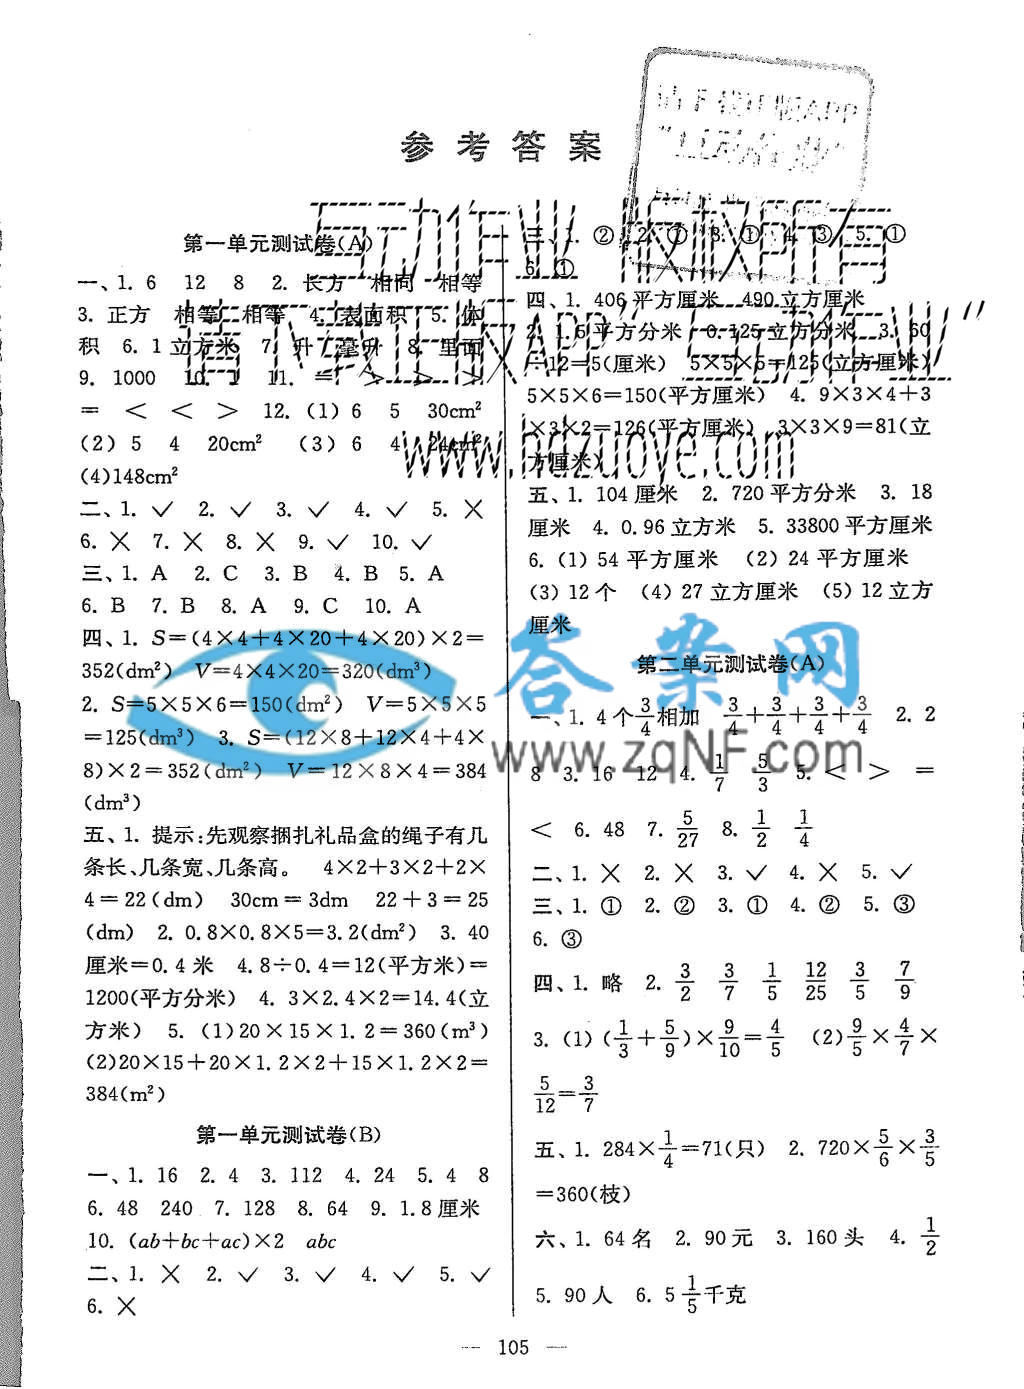 参考答案
第一单元测试卷(A)
一、1. 6 12 8 2. 长方 相同 相等
3. 正方 相等 相等 4. 表面积 5. 体
积 6. 1立方米 7. 升 毫升 8. 里面
9. 1000 10. 1 11. = > > >
= < < > 12. (1) 6 5 30cm²
(2) 5 4 20cm² (3) 6 4 24cm²
(4)148cm²
二、1. ✓ 2. ✓ 3. ✓ 4. ✓ 5. ×
6. × 7. × 8. × 9. ✓ 10. ✓
三、1. A 2. C 3. B 4. B 5. A
6. B 7. B 8. A 9. C 10. A
四、1. S=(4×4+4×20+4×20)×2=
352(dm²) V=4×4×20=320(dm³)
2. S=5×5×6=150(dm²) V=5×5×5
=125(dm³) 3. S=(12×8+12×4+4×
8)×2=352(dm²) V=12×8×4=384
(dm³)
五、1. 提示:先观察捆扎礼品盒的绳子有几
条长、几条宽、几条高。 4×2+3×2+2×
4=22(dm) 30cm=3dm 22+3=25
(dm) 2. 0.8×0.8×5=3.2(dm²) 3. 40
厘米=0.4米 4.8÷0.4=12(平方米)=
1200(平方分米) 4. 3×2.4×2=14.4(立
方米) 5. (1)20×15×1.2=360(m³)
(2)20×15+20×1.2×2+15×1.2×2=
384(m²)
第一单元测试卷(B)
一、1. 16 2. 4 3. 112 4. 24 5. 4 8
6. 48 240 7. 128 8. 64 9. 1.8厘米
10. (ab+bc+ac)×2 abc
二、1. × 2. ✓ 3. ✓ 4. ✓ 5. ✓
6. ×
三、1. ② 2. ① 3. ① 4. ③ 5. ①
6. ①
四、1. 406平方厘米 490立方厘米
2. 1.5平方分米 0.125立方分米 3. 60
÷12=5(厘米) 5×5×5=125(立方厘米)
5×5×6=150(平方厘米) 4. 9×3×4+3
×3×2=126(平方厘米) 3×3×9=81(立
方厘米)
五、1. 104厘米 2. 720平方分米 3. 18
厘米 4. 0.96立方米 5. 33800平方厘米
6. (1) 54平方厘米 (2) 24平方厘米
(3) 12个 (4) 27立方厘米 (5) 12立方
厘米
第二单元测试卷(A)
一、1. 4个3/4相加 3/4+3/4+3/4+3/4 2. 2
8 3. 16 12 4. 1/7 5/3 5. < > =
< 6. 48 7. 5/27 8. 1/2 1/4
二、1. × 2. × 3. ✓ 4. × 5. ✓
三、1. ① 2. ② 3. ① 4. ② 5. ③
6. ③
四、1. 略 2. 3/2 3/7 1/5 12/25 3/5 7/9
3. (1) (1/3+5/9)×9/10=4/5 (2) 9/5×4/7×
5/12=3/7
五、1. 284×1/4=71(只) 2. 720×5/6×3/5
=360(枝)
六、1. 64名 2. 90元 3. 160头 4. 1/2
5. 90人 6. 5 1/5千克
— 105 —
互动作业 版权所有
请下载正版APP"互动作业"
www.hdzuoye.com
答案网
www.zqNF.com